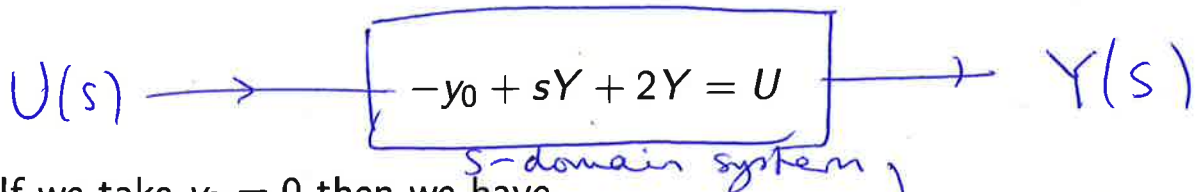 U(s) -y₀ + sY + 2Y = U Y(s)
s-domain system
If we take y₀ = 0 then we have